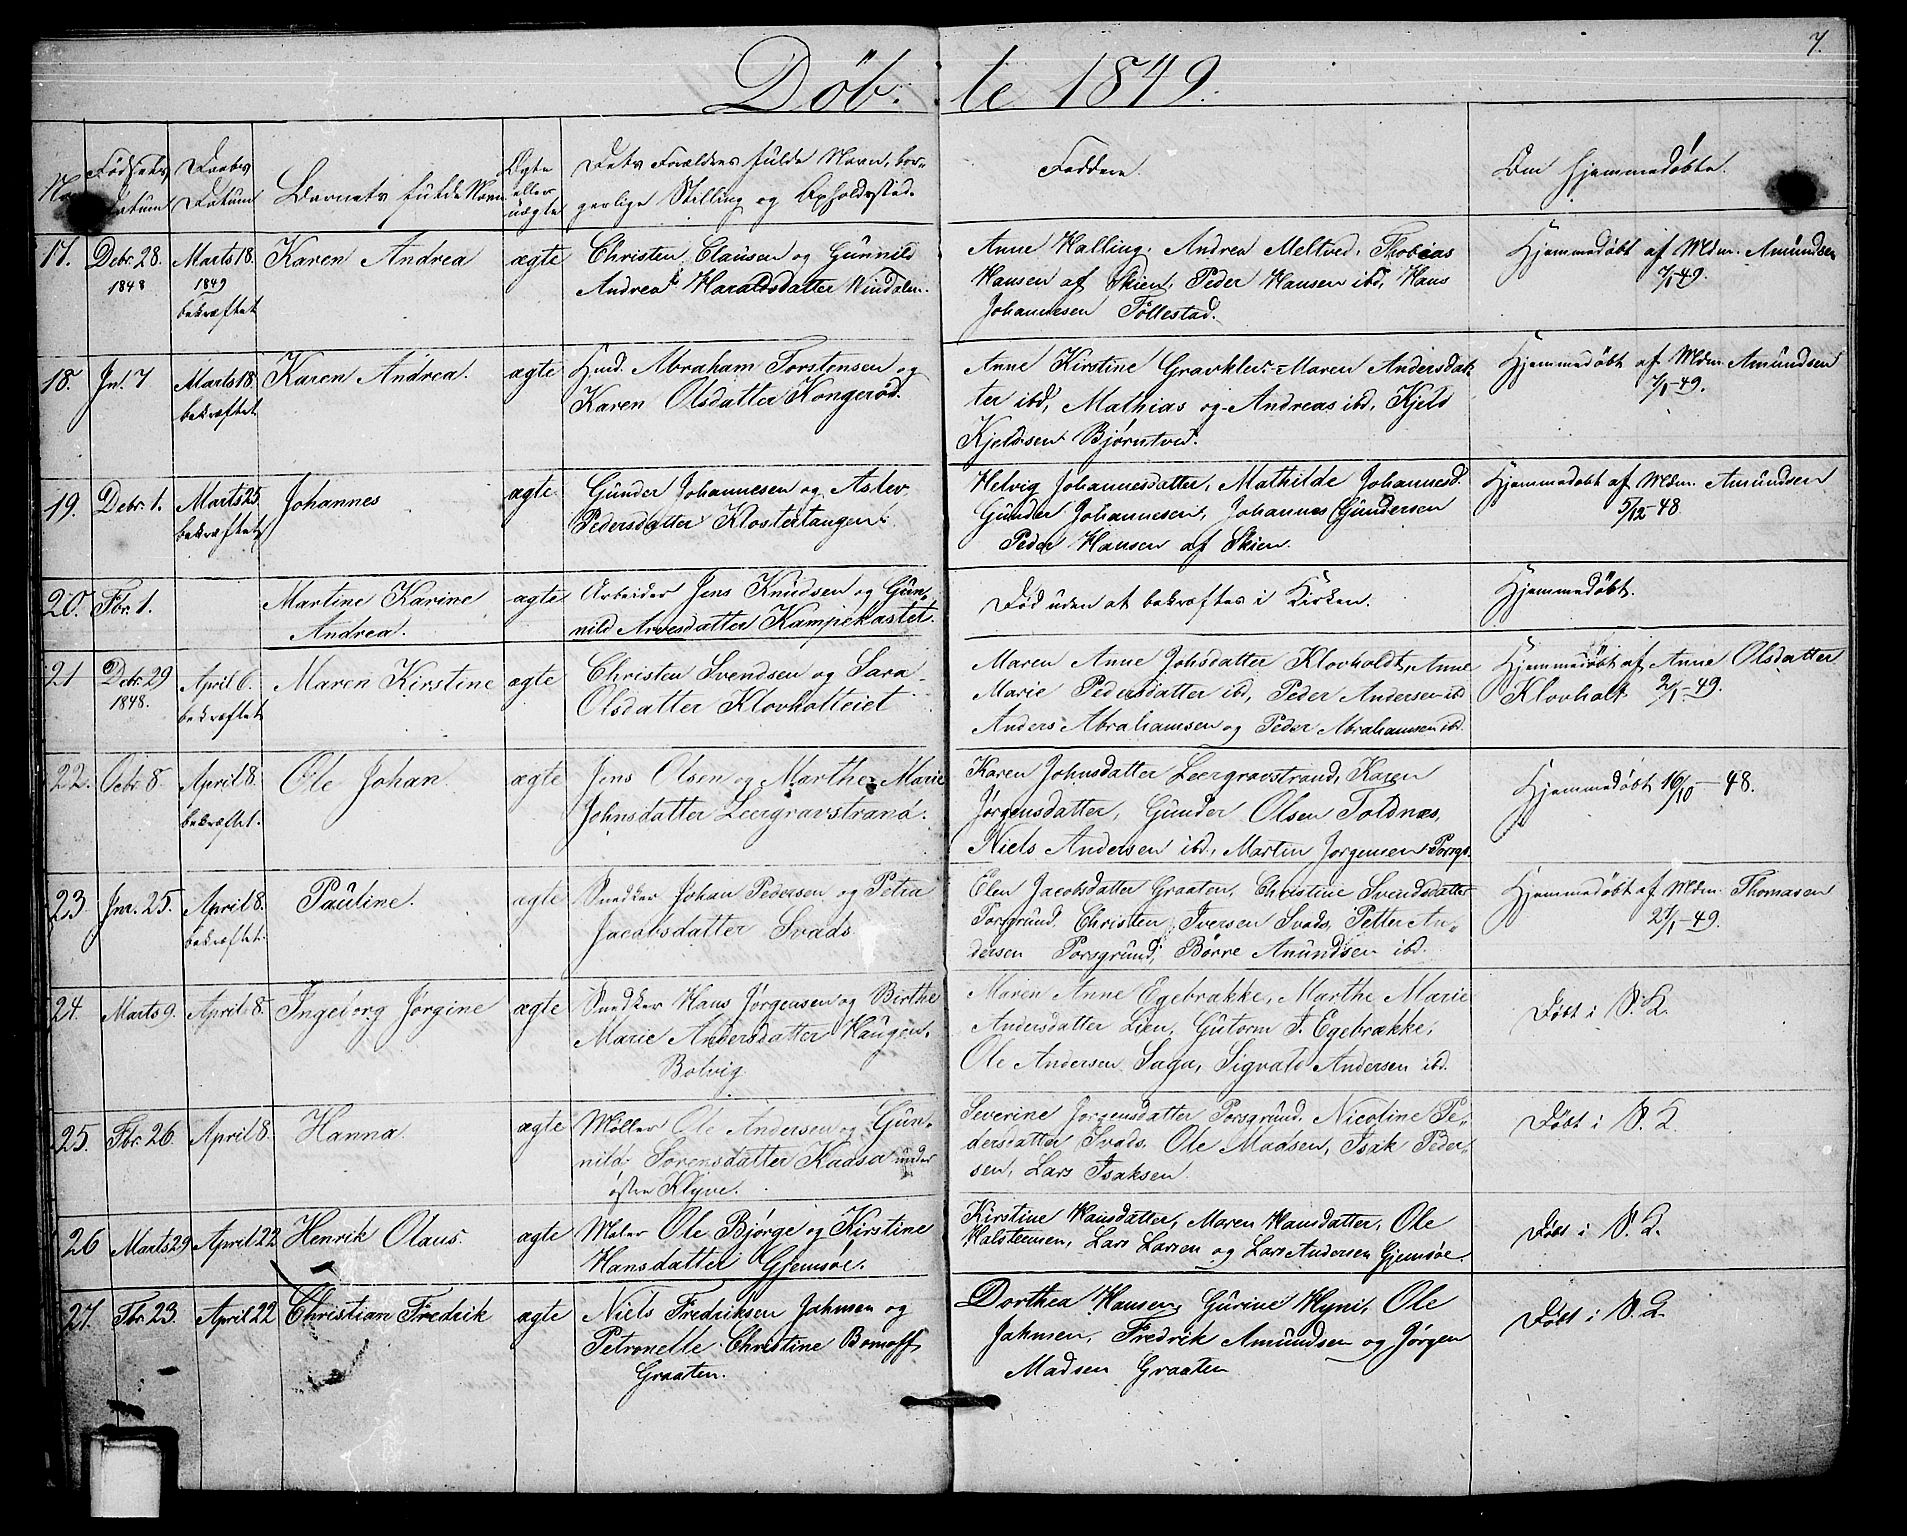 7.
Döb- te 1849.
No
Födsels
Datum
Daabs
Datum
Barnets fulde Navn
Ægte
eller
uægte
Dets Forældres fulde Navn, bor-
gerlige Stilling og Opholdssted.
Faddere.
Om hjemmedöbte.
17.
Debr. 28.
1848
Marts 18.
1849
bekræftet
Karen Andrea
ægte
Christen Clausen og Gunnild
Andrea Haraldsdatter Windalen.
Anne Halling, Andrea Meltved, Thobias
Hansen af Skien, Peder Hansen ibd, Hans
Johannesen Föllestad.
Hjemmedöbt af Mdm. Amundsen
7/1-49.
18.
Jn. 7
Marts 18.
bekræftet
Karen Andrea.
ægte
Husd. Abraham Torstensen og
Karen Olsdatter Kongeröd.
Anne Kirstine Gravklev, Maren Andersdat-
ter ibd, Mathias og Andreas ibd, Kjeld
Kjeldsen Björntved.
Hjemmedöbt af Mdm. Amundsen
7/1-49.
19.
Debr. 1.
Marts 25
bekræftet
Johannes
ægte
Gunder Johannesen og Aslev
Pedersdatter Klostertangen.
Helvig Johannesdatter, Mathilde Johannesd.
Gunder Johannesen, Johannes Gundersen
Peder Hansen af Skien.
Hjemmedöbt af Mdm. Amundsen
5/12-48
20.
Fbr. 1.
Martine Karine
Andrea.
ægte
Arbeider Jens Knudsen og Gun-
nild Arvesdatter Kampekastet.
Död uden at bekræftes i Kirken.
Hjemmedöbt.
21
Debr. 29
1848.
April 6.
bekræftet
Maren Kirstine
ægte
Christen Svendsen og Sara
Olsdatter Klovholteiet
Maren Anne Johsdatter Klovholdt, Anne
Marie Pedersdatter ibd, Peder Andersen ibd
Anders Abrahamsen og Peder Abrahamsen ibd.
Hjemmedöbt af Anne Olsdatter
Klovholt 2/1-49.
22.
Octbr. 8.
April 8.
bekræftet.
Ole Johan
ægte
Jens Olsen og Marthe Marie
Johnsdatter Leergravstrand.
Karen Johnsdatter Leergravstrand, Karen
Jörgensdatter, Gunder Olsen Toldnæs,
Niels Andersen ibd, Martin Jorgensen Porsgr.
Hjemmedöbt 16/10-48.
23.
Jnr. 25.
April 8.
bekræftet.
Pauline.
ægte
Snedker Johan Pedersen og Petra
Jacobsdatter Svads
Elen Jacobsdatter Graaten, Christine Svendsdatter
Porsgrund, Christen Iversen Svads, Petter An-
dersen Porsgrund, Börre Amundsen ibd.
Hjemmedöbt af Mdm. Thomasen
27/1-49.
24.
Marts 9.
April 8.
Ingeborg Jörgine
ægte
Snedker Hans Jörgensen og Birthe
Marie Andersdatter Haugen
Bolvig
Maren Anne Egebrække, Marthe Marie
Andersdatter Lien, Gutorm J. Egebrække,
Ole Andersen Saga, Sigvald Andersen ibd.
Döbt i S. K.
25.
Fbr. 26.
April 8.
Hanna.
ægte
Möller Ole Andersen og Gun-
nild Sorensdatter Kaasa under
östre Klyve.
Severine Jorgensdatter Porsgrund, Nicoline Pe-
dersdatter Svads, Ole Madsen, Isak Peder-
sen, Lars Isaksen.
Döbt i S. K.
26
Marts 29
April 22
Henrik Olaus
ægte
Maler Ole Björge og Kirstine
Hansdatter Gjemsöe.
Kirstine Hansdatter, Maren Hansdatter, Ole
Halstensen, Lars Larsen og Lars Andersen Gjemsöe.
Döbt i S. K.
27.
Fbr. 23.
April 22
Christian Fredrik
ægte
Niels Fredriksen Jahnsen og
Petronelle Christine Bomoff
Graaten.
Dorthea Hansen, Gurine Hyni, Ole
Jahnsen, Fredrik Amundsen og Jörgen
Madsen Graaten
Döbt i S. K.